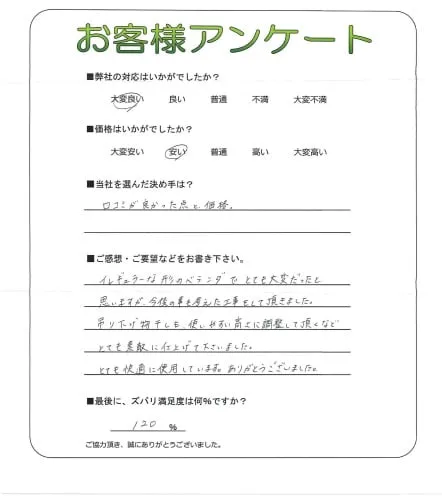 お客様アンケート
■弊社の対応はいかがでしたか?
大変良い 良い 普通 不満 大変不満
■価格はいかがでしたか?
大変安い 安い 普通 高い 大変高い
■当社を選んだ決め手は?
口コミが良かった点と価格。
■ご感想・ご要望などをお書き下さい。
イレギュラーな形のベランダでとても大変だったと
思いますが、今後の事も考えた工事をして頂きました。
吊り下げ物干しも、使いやすい高さに調整して頂くなど
とても素敵に仕上げて下さいました。
とても快適に使用しています。ありがとうございました。
■最後に、ズバリ満足度は何%ですか?
120 %
ご協力頂き、誠にありがとうございました。